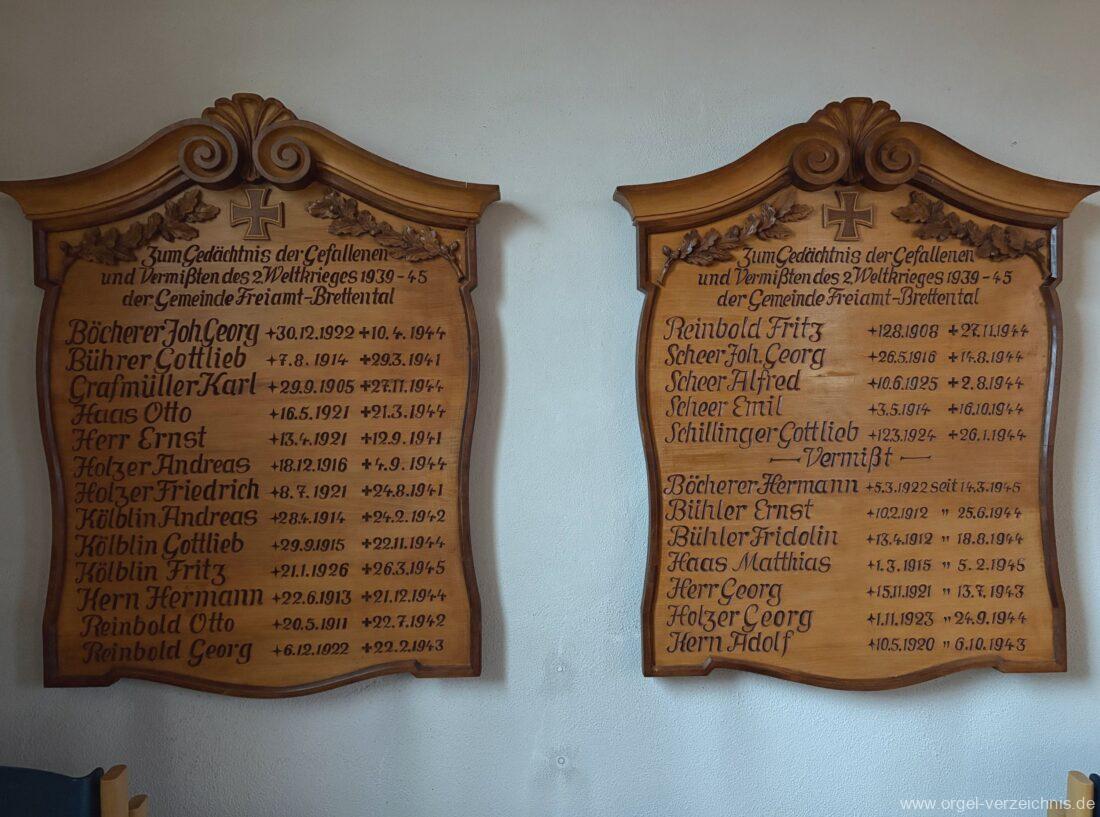 Zum Gedächtnis der Gefallenen
und Vermißten des 2. Weltkrieges 1939-45
der Gemeinde Freiamt-Brettental
Böcherer Joh. Georg +30.12.1922 +10.4.1944
Bührer Gottlieb +7.8.1914 +29.3.1941
Grafmüller Karl +29.9.1905 +27.11.1944
Haas Otto +16.5.1921 +21.3.1944
Herr Ernst +13.4.1921 +12.9.1941
Holzer Andreas +18.12.1916 +4.9.1944
Holzer Friedrich +8.7.1921 +24.8.1941
Kölblin Andreas +28.4.1914 +24.2.1942
Kölblin Gottlieb +29.9.1915 +22.11.1944
Kölblin Fritz +21.1.1926 +26.3.1945
Kern Hermann +22.6.1913 +21.12.1944
Reinbold Otto +20.5.1911 +22.7.1942
Reinbold Georg +6.12.1922 +22.2.1943
Zum Gedächtnis der Gefallenen
und Vermißten des 2. Weltkrieges 1939-45
der Gemeinde Freiamt-Brettental
Reinbold Fritz +12.8.1908 +27.11.1944
Scheer Joh. Georg +26.5.1916 +14.8.1944
Scheer Alfred +10.6.1925 +2.8.1944
Scheer Emil +3.5.1914 +16.10.1944
Schillinger Gottlieb +12.3.1924 +26.1.1944
Vermißt
Böcherer Hermann +5.3.1922 seit 14.3.1945
Bühler Ernst +10.2.1912 " 25.6.1944
Bühler Fridolin +13.4.1912 " 18.8.1944
Haas Matthias +1.3.1915 " 5.2.1945
Herr Georg +15.11.1921 " 13.7.1943
Holzer Georg +1.11.1923 " 24.9.1944
Kern Adolf +10.5.1920 " 6.10.1943
www.orgel-verzeichnis.de